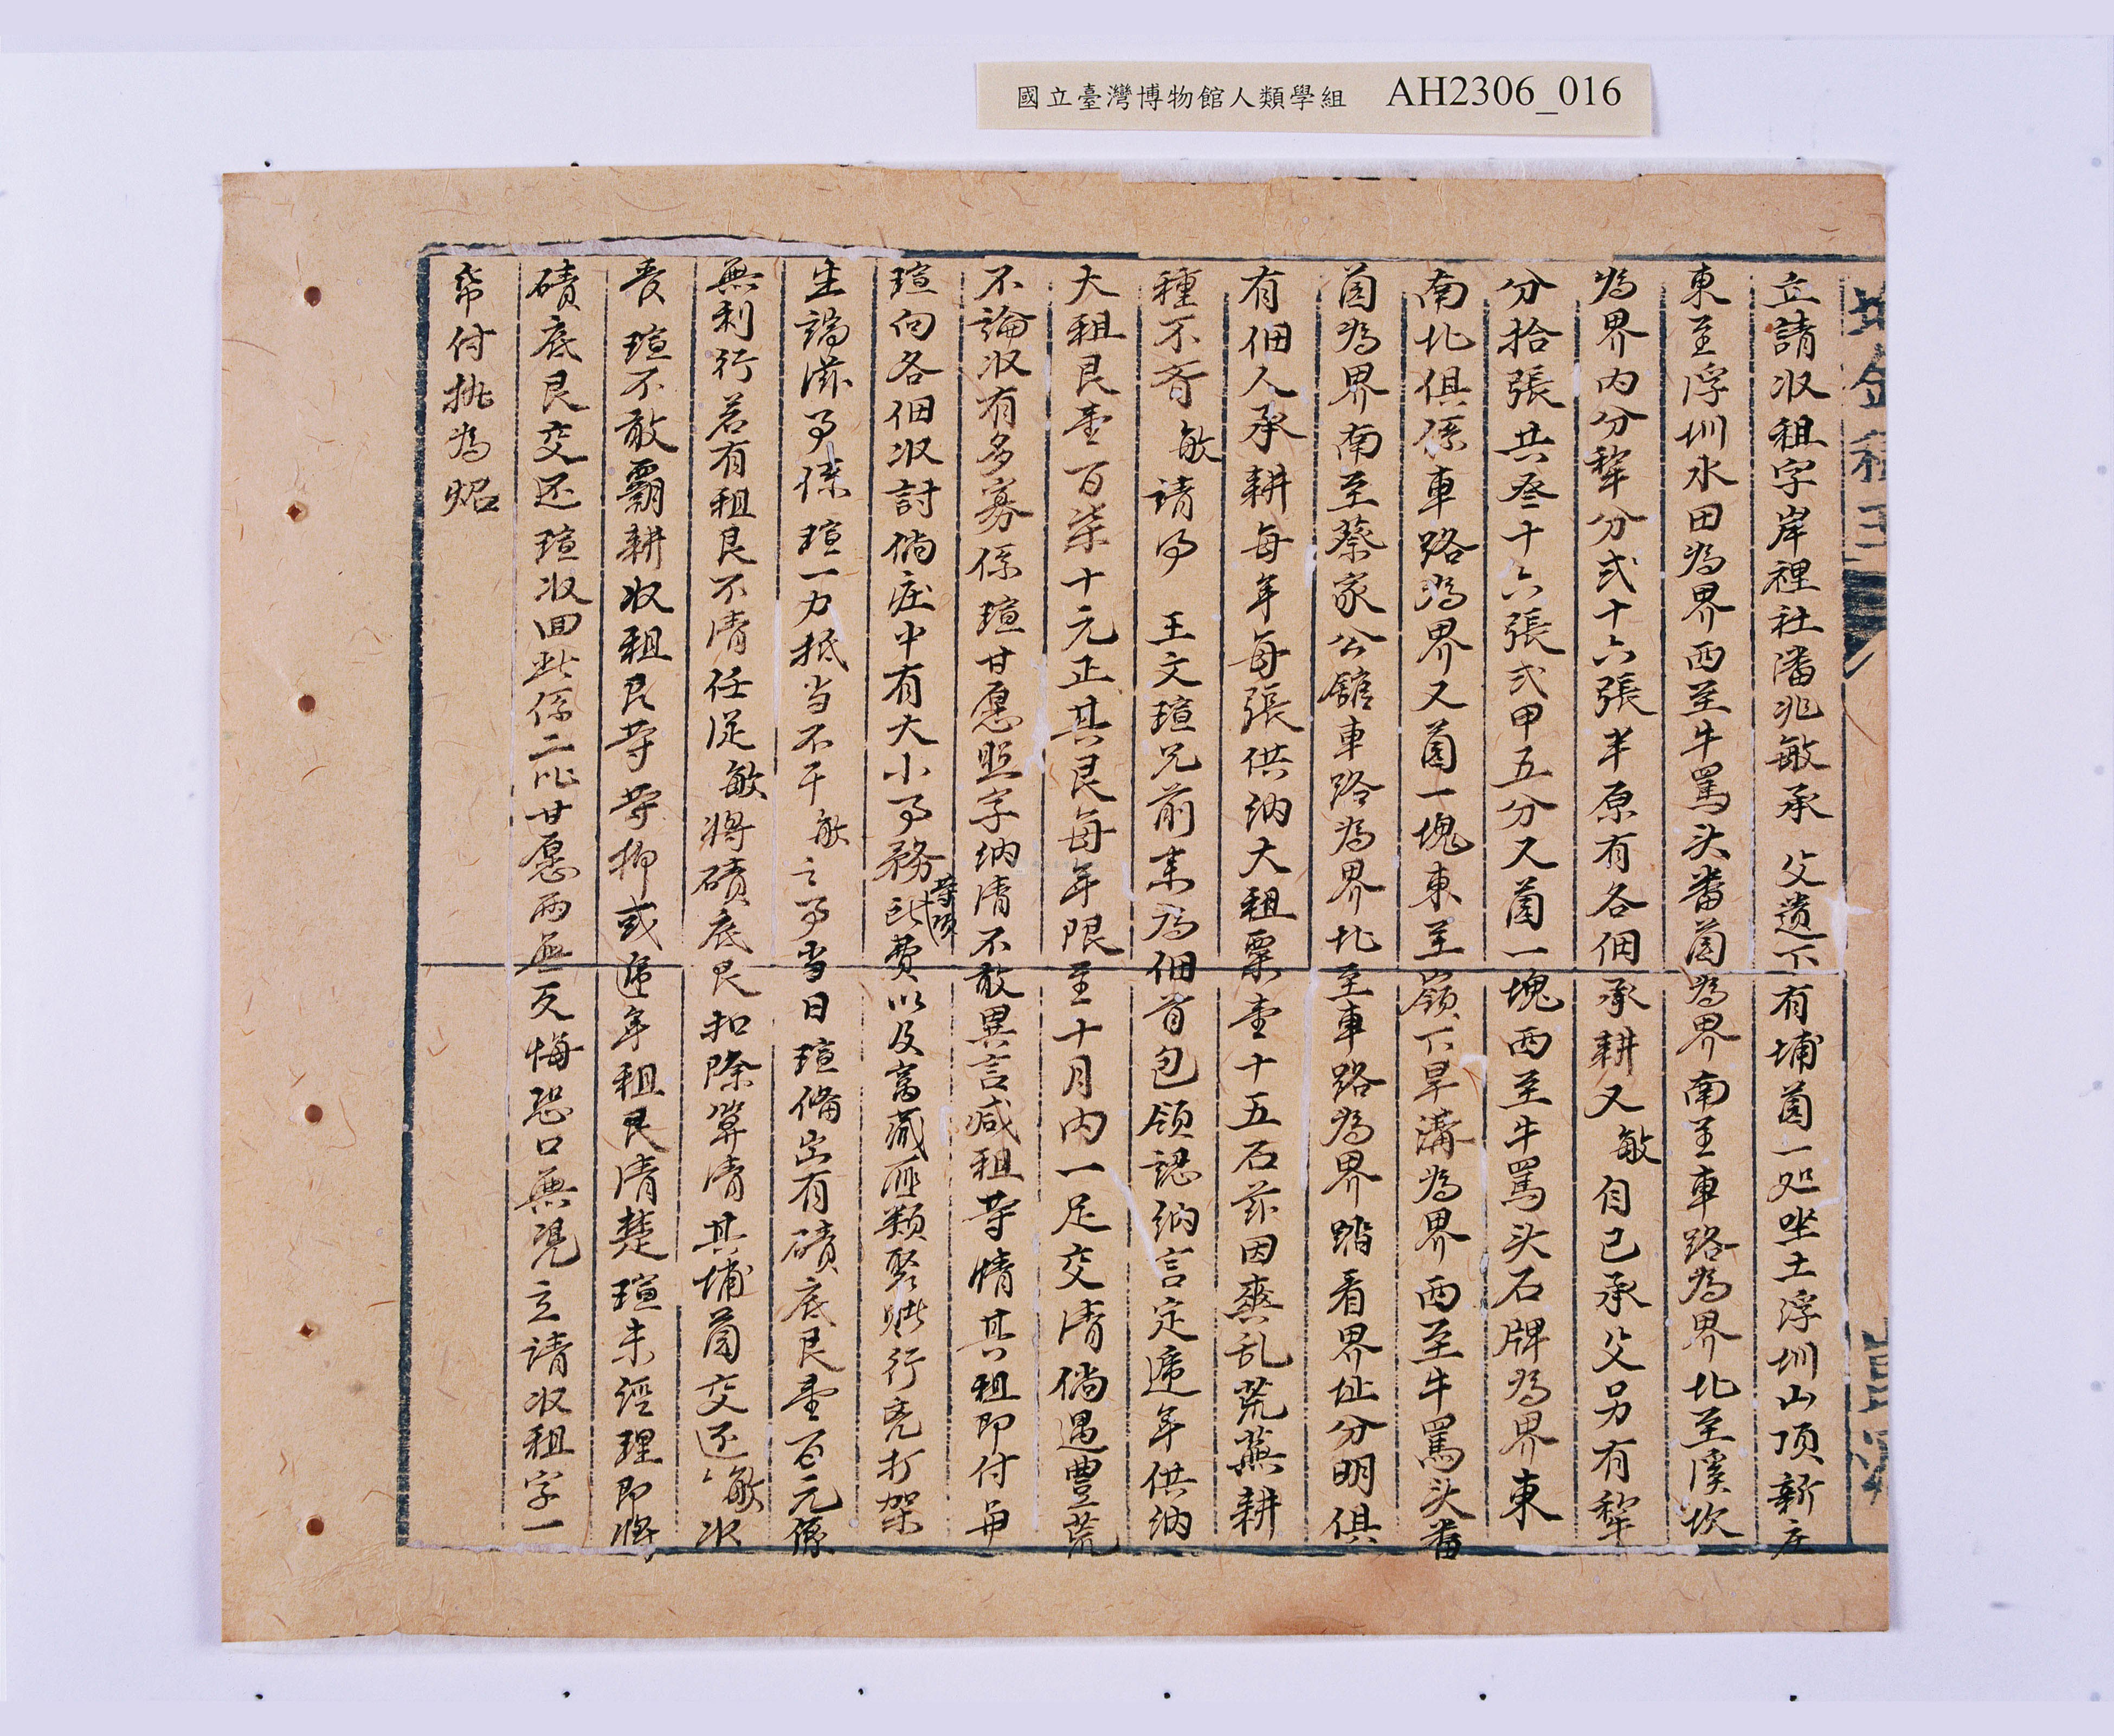 國立臺灣博物館人類學組 AH2306_016
立請収租字岸裡社潘兆敏承 父遺下有埔茵一処坐土浮圳山頂新庄
東至浮圳水田為界西至牛罵头番茵為界南至車路為界北至溪坎
為界內分犂分弍十六張半原有各佃承耕又敏自己承父另有犂
分拾張共叁十六張弍甲五分又茵一塊西至牛罵头石牌為界東
南北俱係車路為界又茵一塊東至嶺下旱溝為界西至牛罵头番
茵為界南至蔡家公舘車路為界北至車路為界踏看界址分明俱
有佃人承耕每年每張供納大租粟壹十五石茲因爽乱荒蕪耕
種不齐敏請得 王文瑄兄前来為佃首包領認納言定遞年供納
大租艮壹百柒十元正其艮每年限至十月內一足交清倘遇豊荒
不論収有多寡係瑄甘愿照字納清不敢異言减租等情其租即付与
瑄向各佃収討倘庄中有大小事務此費以及窩藏匪類聚賭行兇打架
等項
生端滋事係瑄一力抵当不干敏之事当日瑄備出有磧底艮壹百元係
無利行若有租艮不清任從敏將磧底艮扣除算清其埔茵交还敏収
瑄不敢霸耕収租艮等等抑或遞年租艮清楚瑄未經理即將
磧底艮交还瑄収回此係二比甘愿两無反悔恐口無憑立請収租字一
帋付執為炤